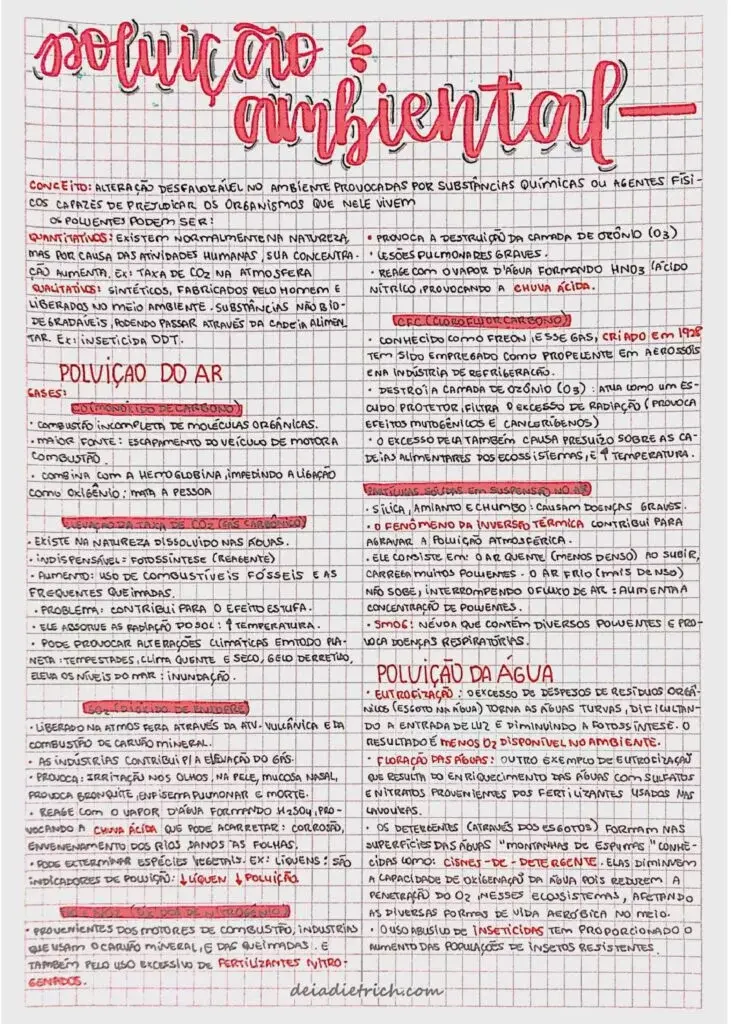 poluição
ambiental
CONCEITO: ALTERAÇÃO DESFAVORÁVEL NO AMBIENTE PROVOCADAS POR SUBSTÂNCIAS QUÍMICAS OU AGENTES FÍSI
COS CAPAZES DE PREJUDICAR OS ORGANISMOS QUE NELE VIVEM
OS POLUENTES PODEM SER:
QUANTITATIVOS: EXISTEM NORMALMENTE NA NATUREZA,
MAS POR CAUSA DAS ATIVIDADES HUMANAS, SUA CONCENTRA-
ÇÃO AUMENTA. EX: TAXA DE CO2 NA ATMOSFERA
QUALITATIVOS: SINTÉTICOS, FABRICADOS PELO HOMEM E
LIBERADOS NO MEIO AMBIENTE. SUBSTÂNCIAS NÃO BIO-
DEGRADÁVEIS, PODENDO PASSAR ATRAVÉS DA CADEIA ALIMEN-
TAR. EX: INSETICIDA DDT.
POLUIÇÃO DO AR
GASES:
CO (MONÓXIDO DE CARBONO)
• COMBUSTÃO INCOMPLETA DE MOLÉCULAS ORGÂNICAS.
• MAIOR FONTE: ESCAPAMENTO DO VEÍCULO DE MOTOR A
COMBUSTÃO.
• COMBINA COM A HEMOGLOBINA, IMPEDINDO A LIGAÇÃO
COMO OXIGÊNIO: MATA A PESSOA
ELEVAÇÃO DA TAXA DE CO2 (GÁS CARBÔNICO)
• EXISTE NA NATUREZA DISSOLVIDO NAS ÁGUAS.
• INDISPENSÁVEL: FOTOSSÍNTESE (REAGENTE)
• AUMENTO: USO DE COMBUSTÍVEIS FÓSSEIS E AS
FREQUENTES QUEIMADAS.
• PROBLEMA: CONTRIBUI PARA O EFEITO ESTUFA.
• ELE ABSORVE AS RADIAÇÃO DO SOL: ↑ TEMPERATURA.
• PODE PROVOCAR ALTERAÇÕES CLIMÁTICAS EM TODO PLA
NETA: TEMPESTADES, CLIMA QUENTE E SECO, GELO DERRETIDO,
ELEVA OS NÍVEIS DO MAR: INUNDAÇÃO.
SO2 (DIÓXIDO DE ENXOFRE)
• LIBERADO NA ATMOSFERA ATRAVÉS DA ATV. VULCÂNICA E DA
COMBUSTÃO DE CARVÃO MINERAL.
• AS INDÚSTRIAS CONTRIBUI P/ A ELEVAÇÃO DO GÁS.
• PROVOCA: IRRITAÇÃO NOS OLHOS, NA PELE, MUCOSA NASAL,
PROVOCA BRONQUITE, ENFISEMA PULMONAR E MORTE.
• REAGE COM O VAPOR D'ÁGUA FORMANDO H2SO4, PRO-
VOCANDO A CHUVA ÁCIDA QUE PODE ACARRETAR: CORROSÃO,
ENVENENAMENTO DOS RIOS, DANOS AS FOLHAS.
• PODE EXTERMINAR ESPÉCIES VEGETAIS. EX: LÍQUENS: SÃO
INDICADORES DE POLUIÇÃO: ↓LÍQUEN ↓POLUIÇÃO
DE NITROGÊNIO)
• PROVENIENTES DOS MOTORES DE COMBUSTÃO, INDÚSTRIAS
QUE USAM O CARVÃO MINERAL, E DAS QUEIMADAS. E
TAMBÉM PELO USO EXCESSIVO DE FERTILIZANTES NITRO-
GENADOS.
• PROVOCA A DESTRUIÇÃO DA CAMADA DE OZÔNIO (O3)
• LESÕES PULMONARES GRAVES.
• REAGE COM O VAPOR D'ÁGUA FORMANDO HNO3 (ÁCIDO
NÍTRICO, PROVOCANDO A CHUVA ÁCIDA.
CFC (CLOROFLUORCARBONO)
• CONHECIDO COMO FREON, ESSE GAS, CRIADO EM 1928
TEM SIDO EMPREGADO COMO PROPELENTE EM AEROSSÓIS
E NA INDÚSTRIA DE REFRIGERAÇÃO.
• DESTRÓI A CAMADA DE OZÔNIO (O3): ATUA COMO UM ES-
CUDO PROTETOR, FILTRA O EXCESSO DE RADIAÇÃO (PROVOCA
EFEITOS MUTOGÊNICOS E CANCERÍGENOS)
• O EXCESSO DELA TAMBÉM CAUSA PREJUÍZO SOBRE AS CA-
DEIAS ALIMENTARES DOS ECOSSISTEMAS, E ↑ TEMPERATURA.
PARTÍCULAS SÓLIDAS EM SUSPENSÃO NO AR
• SÍLICA, AMIANTO E CHUMBO: CAUSAM DOENÇAS GRAVES.
• O FENÔMENO DA INVERSÃO TÉRMICA CONTRIBUI PARA
AGRAVAR A POLUIÇÃO ATMOSFÉRICA.
• ELE CONSISTE EM: O AR QUENTE (MENOS DENSO) AO SUBIR,
CARREGA MUITOS POLUENTES. O AR FRIO (MAIS DENSO)
NÃO SOBE, INTERROMPENDO O FLUXO DE AR: AUMENTA A
CONCENTRAÇÃO DE POLUENTES.
• SMOG: NÉVOA QUE CONTÉM DIVERSOS POLUENTES E PRO
VOCA DOENÇAS RESPIRATÓRIAS.
POLUIÇÃO DA ÁGUA
• EUTROFIZAÇÃO: O EXCESSO DE DESPEJOS DE RESÍDUOS ORGÂ-
NICOS (ESGOTO NA ÁGUA) TORNA AS ÁGUAS TURVAS, DIFICULTAN-
DO A ENTRADA DE LUZ E DIMINUINDO A FOTOSSÍNTESE. O
RESULTADO É MENOS O2 DISPONÍVEL NO AMBIENTE.
• FLORAÇÃO DAS ÁGUAS: OUTRO EXEMPLO DE EUTROFIZAÇÃO
QUE RESULTA DO ENRIQUECIMENTO DAS ÁGUAS COM SULFATOS
E NITRATOS PROVENIENTES DOS FERTILIZANTES USADOS NAS
LAVOURAS.
• OS DETERGENTES (ATRAVÉS DOS ESGOTOS) FORMAM NAS
SUPERFÍCIES DAS ÁGUAS "MONTANHAS DE ESPUMAS" CONHE-
CIDAS COMO: CISNES-DE-DETERGENTE. ELAS DIMINUEM
A CAPACIDADE DE OXIGENAÇÃO DA ÁGUA POIS REDUZEM A
PENETRAÇÃO DO O2, NESSES ECOSSISTEMAS, AFETANDO
AS DIVERSAS FORMAS DE VIDA AERÓBICA NO MEIO.
• O USO ABUSIVO DE INSETICIDAS TEM PROPORCIONADO O
AUMENTO DAS POPULAÇÕES DE INSETOS RESISTENTES.
deiadietrich.com